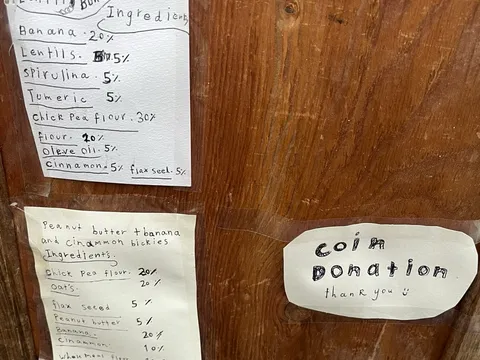 Ingredients
Banana. 20%
Lentils. 5%
Spirulina. 5%
Tumeric 5%
Chick Pea flour. 30%
flour. 20%
oleve oil. 5%
cinnamon. 5% flax seed. 5%
Peanut butter + banana
and cinammon bickies
Ingredients.
Chick Pea flour. 20%
Oats. 20%
flax seeed 5%
Peanut butter 5%
Banana. 20%
Cinammon. 10%
coin
Donation
thank you